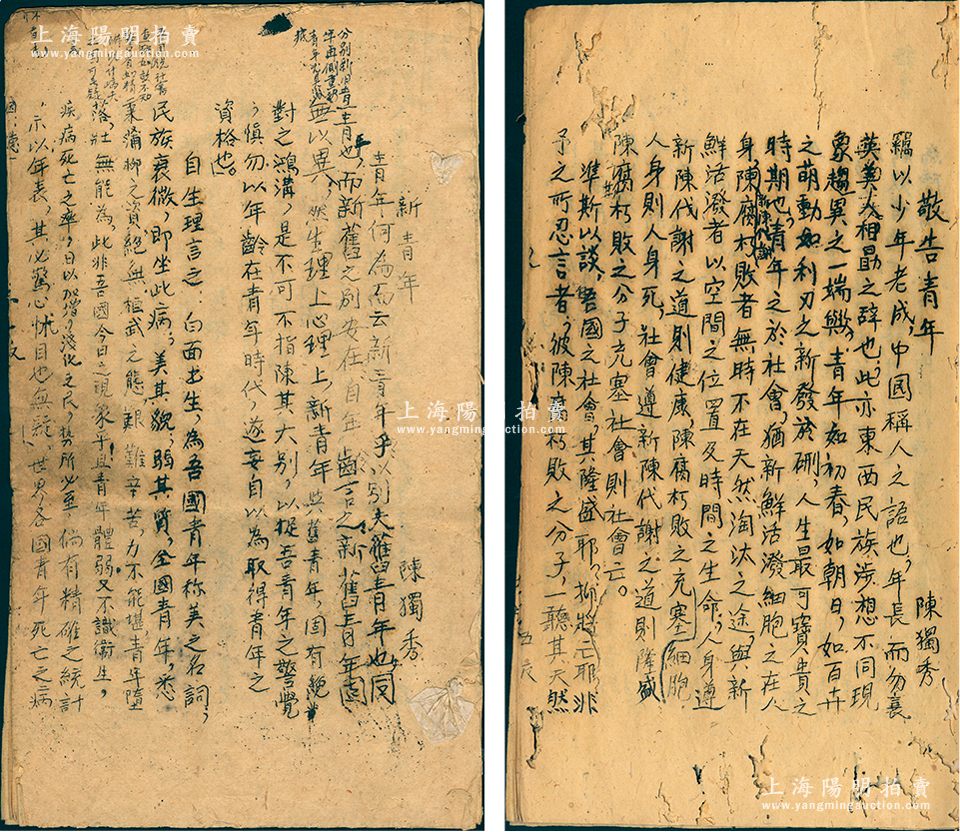 上海陽明拍賣
www.yangmingauction.com
新青年 陳獨秀
青年何為而云新青年乎以別夫舊青年也同
青年也,而新舊之別安在自年齡言之新舊青年固
無以異,然生理上心理上,新青年與舊青年,固有絕
對之鴻溝,是不可不指陳其大別,以促吾青年之警覺
,慎勿以年齡在青年時代,遂妄自以為取得青年之
資格也。
自生理言之,白面書生,為吾國青年稱美之名詞,
民族衰微,即坐此病,美其貌,弱其質,全國青年,悉
秉蒲柳之資,絕無桓武之態艱難辛苦,力不能堪,青年墮
落,壯無能為,此非吾國今日之現象乎且青年體弱又不識衛生,
疾病死亡之率,日以加增,淺化之民,勢所必至倘有精確之統計
,示以年表,其必驚心怵目也無疑。世界各國青年死亡之病
上海陽明拍賣
www.yangmingauction.com
敬告青年 陳獨秀
竊以少年老成,中國稱人之語也,年長而勿衰
英美人相勗之辭也,此亦東西民族涉想不同現
象趨異之一端歟,青年如初春,如朝日,如百卉
之萌動,如利刃之新發於硎,人生最可寶貴之
時期也,青年之於社會,猶新鮮活潑細胞之在人
身,新陳代謝陳腐朽敗者無時不在天然淘汰之途,與新
鮮活潑者以空間之位置及時間之生命,人身遵
新陳代謝之道則健康,陳腐朽敗之充塞細胞
人身則人身死,社會遵新陳代謝之道則隆盛
陳腐朽敗之分子充塞社會則社會亡。
準斯以談,吾國之社會,其隆盛耶,抑將亡耶非
予之所忍言者,彼陳腐朽敗之分子,一聽其天然
上海陽明拍賣
www.yangmingauction.com